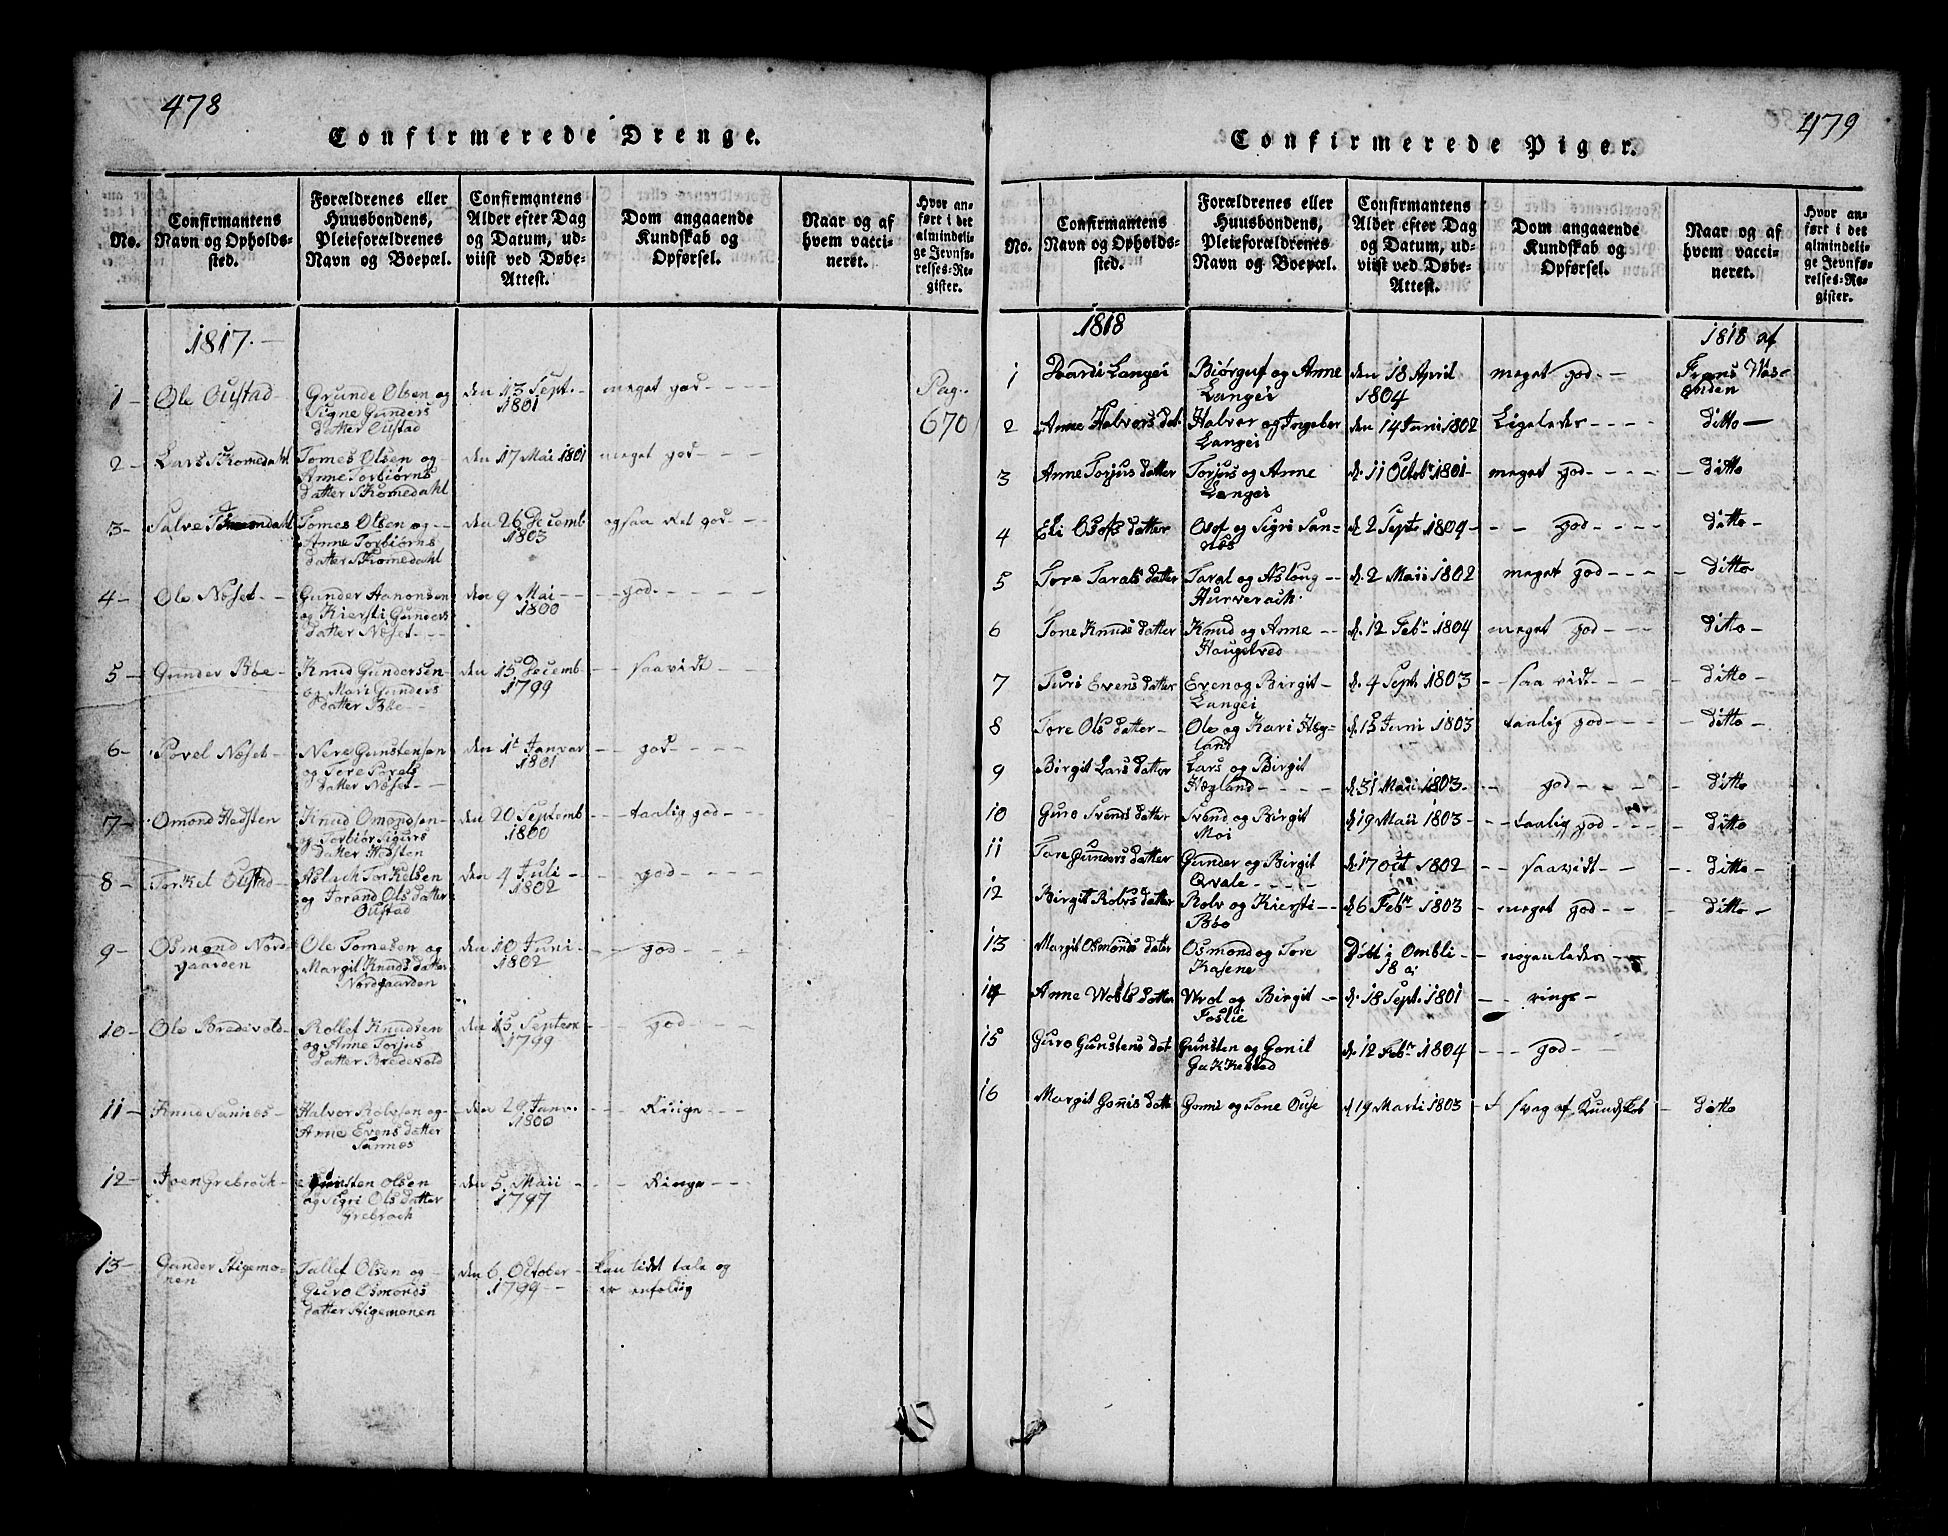 478
Confirmerede Drenge.
No.
Confirmantens
Navn og Opholds-
sted.
Forældrenes eller
Huusbondens,
Pleieforældrenes
Navn og Boepæl.
Confirmantens
Alder efter Dag
og Datum, ud-
viist ved Døbe-
Attest.
Dom angaaende
Kundskab og
Opførsel.
Naar og af
hvem vacci-
neret.
Hvor an-
ført i det
almindeli-
ge Jevnfø-
relses-Re-
gister.
1817.
1 Ole Oustad
Grunde Olsen og
Signe Gunders
datter Oustad
den 13 Sept.
1801
meget god
Pag.
670
2 Lars Skomedahl
Tomes Olsen og
Anne Torbiørns
datter Skomedahl
den 17 Mai 1801
meget god
3 Salve
Tomes Olsen og
Anne Torbiørns
datter Skomedahl
den 26 Decemb
1803
ogsaa ret god
4 Ole Næset
Gunder Aanonsen
og Kiersti Gunders
datter Næset
den 9 Mai
1800
god
5 Gunder Bøe
Knud Gundersen
og Mari Gunders
datter Bøe
den 15 Decemb
1799
saavidt
6 Povel Næset
Nere Gunstensen
og Tore Povels
datter Næset
den 1t Januar
1801
god
7 Omond Hedsten
Knud Omondsen
og Torbiør Sigurs
datter Hedsten
den 20 Septemb
1800
taalig god
8 Torkel Oustad
Aslach Torkelsen
og Jorand Ols datter
Oustad
den 4 Juli
1802
god
9 Osmond Nord
gaarden
Ole Tomesen og
Margit Knuds datter
Nordgaarden
den 10 Juni
1802
god
10 Ole Bredevold
Rollef Knudsen
og Anne Torjus
datter Bredevold
den 15 Septem
1799
god
11 Knud Sannes
Halvor Rolvsen og
Anne Evens datter
Sannes
den 29 Janv.
1800
Ringe
12 Joen Grebroch
Gunsten Olsen
og Sigri Ols datter
Grebroch
den 5 Maii
1797
Ringe
13 Gunder Stigemo-
nen
Tallef Olsen og
Guro Osmonds
datter Stigemonen
den 6 October
1799
kan lidt tale og
er enfoldig
479
Confirmerede Piger.
No.
Confirmantens
Navn og Opholds-
sted.
Forældrenes eller
Huusbondens,
Pleieforældrenes
Navn og Boepæl.
Confirmantens
Alder efter Dag
og Datum, ud-
viist ved Døbe-
Attest.
Dom angaaende
Kundskab og
Opførsel.
Naar og af
hvem vacci-
neret.
Hvor an-
ført i det
almindeli-
ge Jevnfø-
relses-Re-
gister.
1818
1818 af
1 Langei
Biørguf og Anne
Langei
den 18 April
1804
meget god
Frans
2 Anne Halvors dat
Halvor og Ingebor
Langei
den 14 Juni 1802
Ligeledes
ditto
3 Anne Torjus datter
Torjus og Anne
Langei
d. 11 Octobr 1801
meget god
ditto
4 Eli Osofs datter
Osof og Sigri San-
nes
d. 2 Sept 1804
god
ditto
5 Tore Taralds datter
Taral og Asloug
Hurverack
d. 2 Maii 1802
meget god
ditto
6 Tone Knuds datter
Knud og Anne
Haugetved
d. 12 Febr 1804
meget god
ditto
7 Turi Evens datter
Even og Birgit
Langei
d. 4 Sept 1803
saa vidt
ditto
8 Tore Ols datter
Ole og Kari Hæg-
land
d. 15 Juni 1803
taalig god
ditto
9 Birgit Lars datter
Lars og Birgit
Hægland
d. 31 Maii 1803
god
ditto
10 Guro Svends datter
Svend og Birgit
Moi
d. 19 Maii 1803
taalig god
ditto
11 Tore Gunders datter
Gunder og Birgit
Qvale
d. 17 Oct 1802
saavidt
ditto
12 Birgit Rolvs datter
Rolv og Kiersti
Bøe
d. 6 Febr 1803
meget god
ditto
13 Margit Osmonds datter
Osmond og Tore
Kasene
Døbt i Ombli
nogenledes
14 Anne Wols datter
Wol og Birgit
Foslie
d. 18 Sept. 1801
ringe
15 Guro Gunstens dat
Gunsten og Gonil
Gakkestad
d. 12 Febr 1804
god
16 Margit Gonis datte
Gonni og Tone Ouse
d 19 Marti 1803
svag af Kundskab
ditto